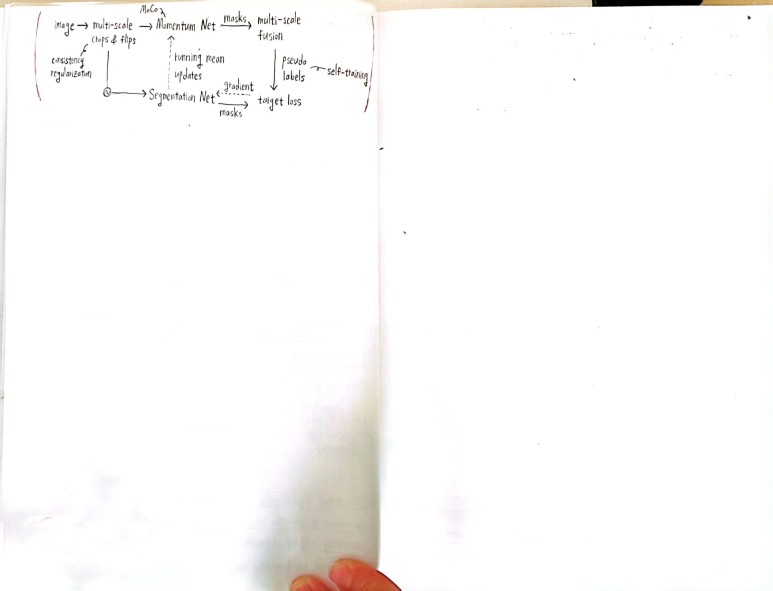 MoCo
image → multi-scale → Momentum Net → masks → multi-scale
crops & flips
fusion
consistency
regularization
running mean
updates
pseudo
labels
self-training
gradient
Segmentation Net → target loss
masks